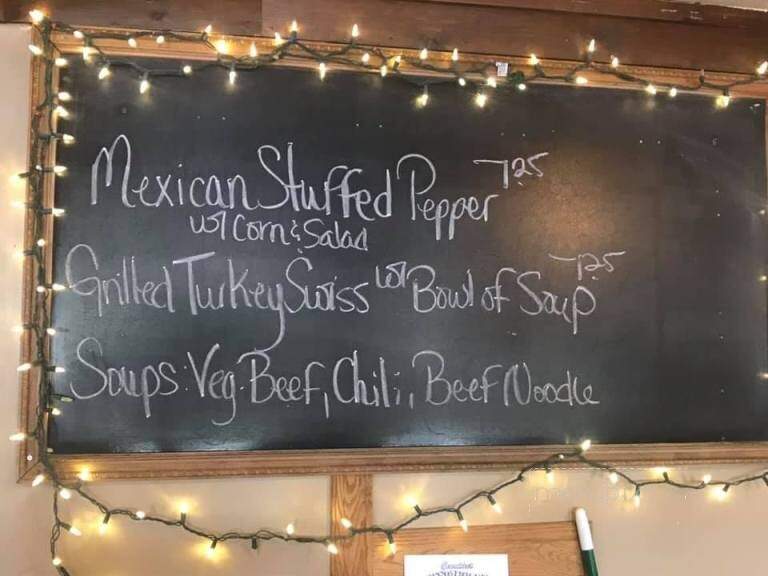 Mexican Stuffed Pepper 7.25
w/ Corn & Salad
Grilled Turkey Swiss w/ Bowl of Soup 7.25
Soups: Veg. Beef, Chili, Beef Noodle